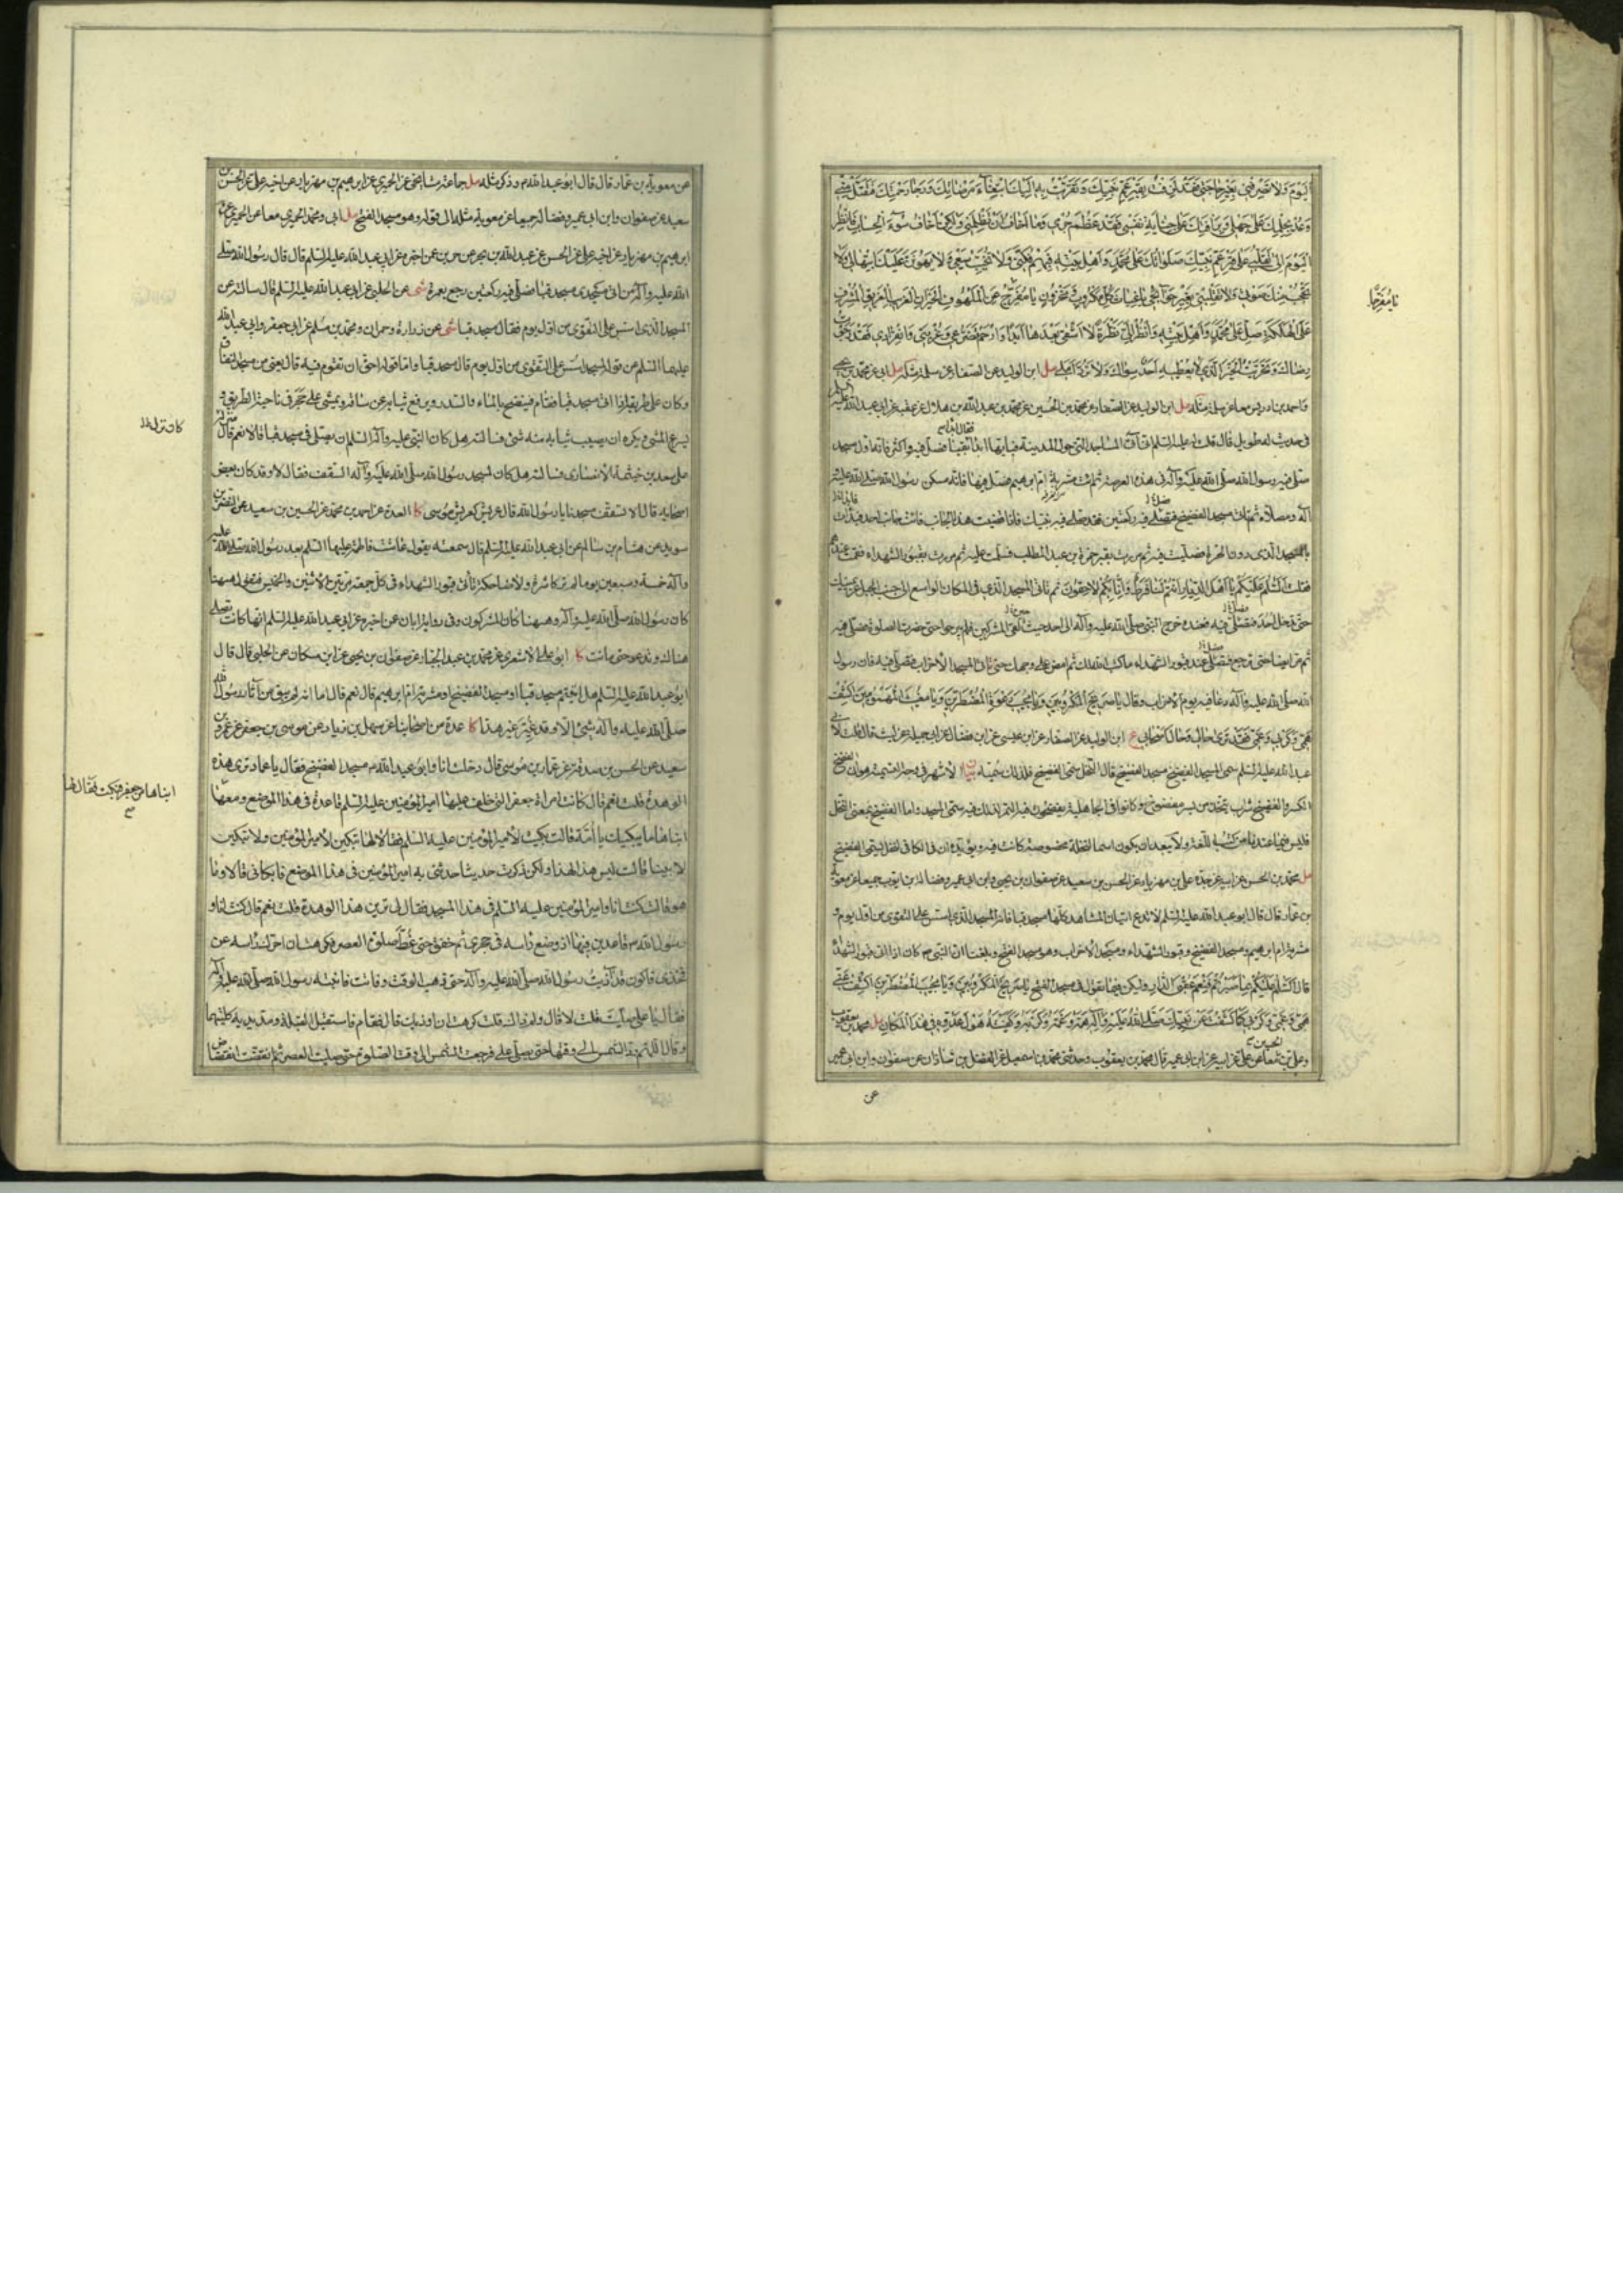 اليوم ولا تصرفني بغير حاجتي فقد لزقت بقبر عم نبيك وتقربت به اليك ابتغاء مرضاتك ورجاء رحمتك فتقبل مني
وعد بحلمك على جهلي وبرأفتك على جناية نفسي فقد عظم جرمي وما اخاف ان تظلمني ولكن اخاف سوء الحساب فانظر
اليوم الى تقلبي على قبر عم نبيك صلواتك على محمد واهل بيته فبهم فكني ولا تخيب سعيي ولا يهونن عليك ابتهالي ولا
تحجب منك صوتي ولا تقلبني بغير حوائجي يا غياث كل مكروب ومحزون يا مفرج عن الملهوف الحيران الغريب الغريق المشرف
على الهلكة صل على محمد واهل بيته وانظر الي نظرة لا اشقى بعدها ابدا وارحم تضرعي وغربتي وانفرادي فقد رجوت
رضاك وتحريت الخير الذي لا يعطيه احد سواك ولا ترد املي مل ابن الوليد عن الصفار عن سلمة مثله مل ابي عن محمد بن يحيى
واحمد بن ادريس معا عن سلمة مثله مل ابن الوليد عن الصفار عن محمد بن الحسين عن محمد بن عبد الله بن هلال عن عقبة عن ابي عبد الله عليه السلم
في حديث له طويل قال قلت له عليه السلم انا نأتي المساجد التي حول المدينة فبايها ابدأ فقال ابدأ بقبا فصل فيه واكثر فانه اول مسجد
صلى فيه رسول الله صلى الله عليه وآله في هذه العرصة ثم ائت مشربة ام ابرهيم فصل فيها فانه مسكن رسول الله صلى الله عليه
وآله ومصلاه ثم تأتي مسجد الفضيخ فتصلي فيه ركعتين فقد صلى فيه نبيك فاذا قضيت هذا الجانب فائت جانب احد فبدأت
بالمسجد الذي دون الحرة فصليت فيه ثم مررت بقبر حمزة بن عبد المطلب فسلمت عليه ثم مررت بقبور الشهداء فقمت عندهم
فقلت السلم عليكم يا اهل الديار انتم لنا فرط وانا بكم لاحقون ثم تأتي المسجد الذي في المكان الواسع الى جنب الجبل عن يمينك
حتى تدخل احد فتصلي فيه فعنده خرج النبي صلى الله عليه وآله الى احد حيث لقي المشركين فلم يبرحوا حتى حضرت الصلوة فصلى فيه
ثم مر ايضا حتى ترجع فتصلي عند قبور الشهداء ما كتب الله لك ثم امض على وجهك حتى تأتي المسجد الاحزاب فتصلي فيه فان رسول
الله صلى الله عليه وآله دعا فيه يوم الاحزاب وقال يا صريخ المكروبين ويا مجيب دعوة المضطرين ويا مغيث المهمومين اكشف
همي وكربي وغمي فقد ترى حالي وحال اصحابي ع ابن الوليد عن الصفار عن ابن عيسى عن ابن فضال عن ابي جميلة عن ليث قال قلت لابي
عبد الله عليه السلم لم سمي المسجد الفضيخ مسجد الفضيخ قال النخل سمي الفضيخ فلذلك سميته بيان الاشهر في وجه التسمية هو ان الفضيخ
الكسر والفضيخ شراب يتخذ من بسر مفضوخ وكانوا في الجاهلية يفضخون فيه التمر لذلك فبه سمي المسجد واما الفضيخ بمعنى النخل
فليس فيما عندنا من كتب اللغة ولا يبعد ان يكون اسما لنخلة مخصوصة كانت فيه ويؤيده ان في الكافي لنخل يسمى الفضيخ
مل محمد بن الحسن عن ابيه عن جده علي بن مهزيار عن الحسن بن سعيد عن صفوان بن يحيى وابن ابي عمير وفضالة بن ايوب جميعا عن معوية
بن عمار قال قال ابو عبد الله عليه السلم لا تدع اتيان المشاهد كلها مسجد قبا فانه المسجد الذي اسس على التقوى من اول يوم و
مشربة ام ابرهيم ومسجد الفضيخ وقبور الشهداء ومسجد الاحزاب وهو مسجد الفتح وبلغنا ان النبي ص كان اذا اتى قبور الشهداء
قال السلم عليكم بما صبرتم فنعم عقبى الدار وليكن فيما تقول في مسجد الفتح يا صريخ المكروبين ويا مجيب المضطرين اكشف عني
همي وغمي وكربي كما كشفت عن نبيك صلى الله عليه وآله همه وغمه وكربه وكفيته هول عدوه في هذا المكان مل محمد بن يعقوب
وعلي بن الحسين معا عن علي عن ابيه عن ابن ابي عمير قال محمد بن يعقوب وحدثني محمد بن اسمعيل عن الفضل بن شاذان عن صفوان وابن ابي عمير
عن
يا مفرجا
عن معوية بن عمار قال قال ابو عبد الله م وذكر مثله مل جماعة مشايخي عن الحميري عن ابرهيم بن مهزيار عن اخيه علي عن الحسن بن
سعيد عن صفوان وابن ابي عمير وفضالة جميعا عن معوية مثله الى قوله وهو مسجد الفتح مل ابي ومحمد الحميري معا عن الحميري عن
ابرهيم بن مهزيار عن اخيه علي عن الحسن عن عبد الله بن بحر عن حريز عمن اخبره عن ابي عبد الله عليه السلم قال قال رسول الله صلى
الله عليه وآله من اتى مسجدي مسجد قبا فصلى فيه ركعتين رجع بعمرة شى عن الحلبي عن ابي عبد الله عليه السلم قال سالته عن
المسجد الذي اسس على التقوى من اول يوم فقال مسجد قبا شى عن زرارة وحمران ومحمد بن مسلم عن ابي جعفر وابي عبد الله
عليهما السلم عن قوله لمسجد اسس على التقوى من اول يوم قال مسجد قبا واما قوله احق ان تقوم فيه قال يعني من مسجد النفاق
وكان على طريقه اذا اتى مسجد قبا فقام فينضح بالماء والسدر ويرفع ثيابه عن ساقيه ويمشي على حجر في ناحية الطريق و
يسرع المشي ويكره ان يصيب ثيابه منه شئ فسالته هل كان النبي عليه وآله السلم ان يصلي في مسجد قبا قال نعم قال
صلى سعد بن خيثمة الانصاري فسالته هل كان لمسجد رسول الله صلى الله عليه وآله السقف فقال لا وقد كان بعض
اصحابه قال الا تسقف مسجدنا يا رسول الله قال عريش كعريش موسى كا العدة عن احمد بن محمد عن الحسين بن سعيد عن النضر بن
سويد عن هشام بن سالم عن ابي عبد الله عليه السلم قال سمعته يقول عاشت فاطمة عليها السلم بعد رسول الله صلى الله عليه
وآله خمسة وسبعين يوما لم تر كاشرة ولا ضاحكة تأتي قبور الشهداء في كل جمعة مرتين الاثنين والخميس فتقول هيهنا
كان رسول الله صلى الله عليه وآله وهيهنا كان المشركون وفي رواية ابان عن اخبره عن ابي عبد الله عليه السلم انها كانت تصلي
هناك وتدعو حتى ماتت كا ابو علي الاشعري عن محمد بن عبد الجبار عن صفوان بن يحيى عن ابن مسكان عن الحلبي قال قال
ابو عبد الله عليه السلم هل اتيتم مسجد قبا او مسجد الفضيخ او مشربة ام ابرهيم قال نعم قال اما انه لم يبق من آثار رسول الله
صلى الله عليه وآله شئ الا وقد غير غير هذا كا عدة من اصحابنا عن سهل بن زياد عن موسى بن جعفر عن عمرو بن
سعيد عن الحسن بن صدقة عن عمار بن موسى قال دخلت انا وابو عبد الله م مسجد الفضيخ فقال يا عمار ترى هذه
الوهدة قلت نعم قال كانت امراة جعفر التي خلف عليها امير المؤمنين عليه السلم قاعدة في هذا الموضع ومعها
ابناها من جعفر فبكت فقال لها
ابناها ما يبكيك يا امة قالت بكيت لأمير المؤمنين عليه السلم فقالا لها تبكين لأمير المؤمنين ولا تبكين
لابينا قالت ليس هذا لهذا ولكن ذكرت حديثا حدثني به امير المؤمنين في هذا الموضع فابكاني قالا وما
هو قالت كنت انا وامير المؤمنين عليه السلم في هذا المسجد فقال لي ترين هذا الوهدة قلت نعم قال كنت انا و
رسول الله م قاعدين فيها اذ وضع راسه في حجري ثم خفق حتى غط وصلوة العصر فكرهت ان احرك راسه عن
فخذي فاكون قد آذيت رسول الله صلى الله عليه وآله حتى ذهب الوقت وفاتت فانتبه رسول الله صلى الله عليه وآله
فقال يا علي صليت قلت لا قال ولم ذاك قلت كرهت ان اوذيك قال فقام فاستقبل القبلة ومد يديه كلتيهما
وقال اللهم رد الشمس الى وقتها حتى يصلي علي فرجعت الشمس الى وقت الصلوة حتى صليت العصر ثم انقضت انقضاض